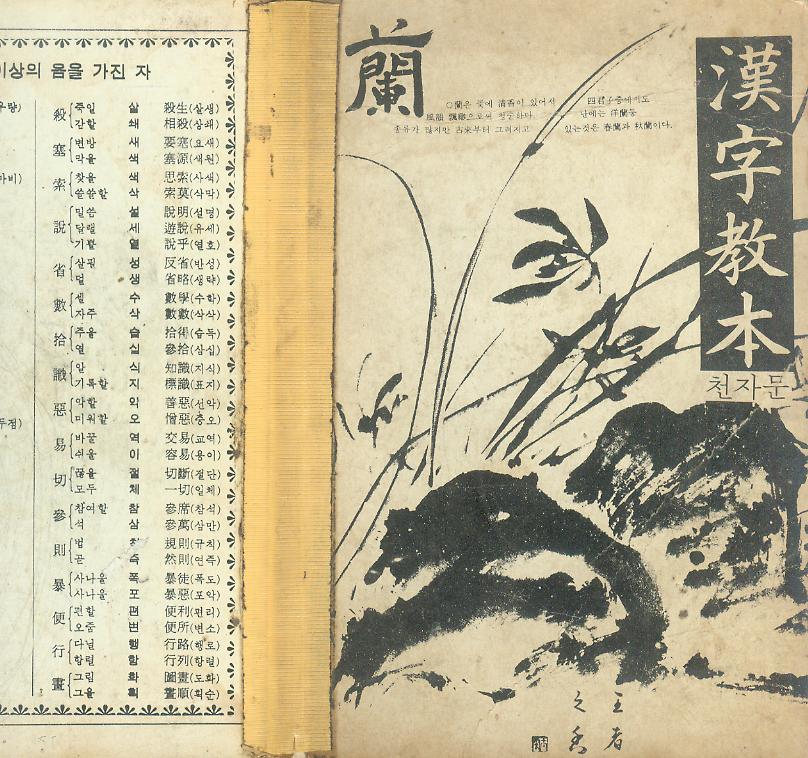 이상의 음을 가진 자
殺 죽일 살 殺生(살생)
감할 쇄 相殺(상쇄)
塞 변방 새 要塞(요새)
막을 색 塞源(색원)
索 찾을 색 思索(사색)
쓸쓸할 삭 索莫(삭막)
說 말씀 설 說明(설명)
달랠 세 遊說(유세)
기쁠 열 說乎(열호)
省 살필 성 反省(반성)
덜 생 省略(생략)
數 셀 수 數學(수학)
자주 삭 數數(삭삭)
拾 주을 습 拾得(습득)
열 십 參拾(삼십)
識 알 식 知識(지식)
기록할 지 標識(표지)
惡 악할 악 善惡(선악)
미워할 오 憎惡(증오)
易 바꿀 역 交易(교역)
쉬울 이 容易(용이)
切 끊을 절 切斷(절단)
모두 체 一切(일체)
參 참여할 참 參席(참석)
석 삼 參萬(삼만)
則 법 칙 規則(규칙)
곧 즉 然則(연즉)
暴 사나울 폭 暴徒(폭도)
사나울 포 暴惡(포악)
便 편할 편 便利(편리)
오줌 변 便所(변소)
行 다닐 행 行路(행로)
항렬 항 行列(항렬)
畫 그림 화 圖畫(도화)
그을 획 畫順(획순)
두점)
蘭
○蘭은 꽃에 淸香이 있어서
風韻 飄緲으로써 청풍하다.
종류가 많지만 古來부터 그려지고
四君子중에서도
난에는 洋蘭등
있는것은 春蘭과 秋蘭이다.
漢字敎本
천자문
王者
之香